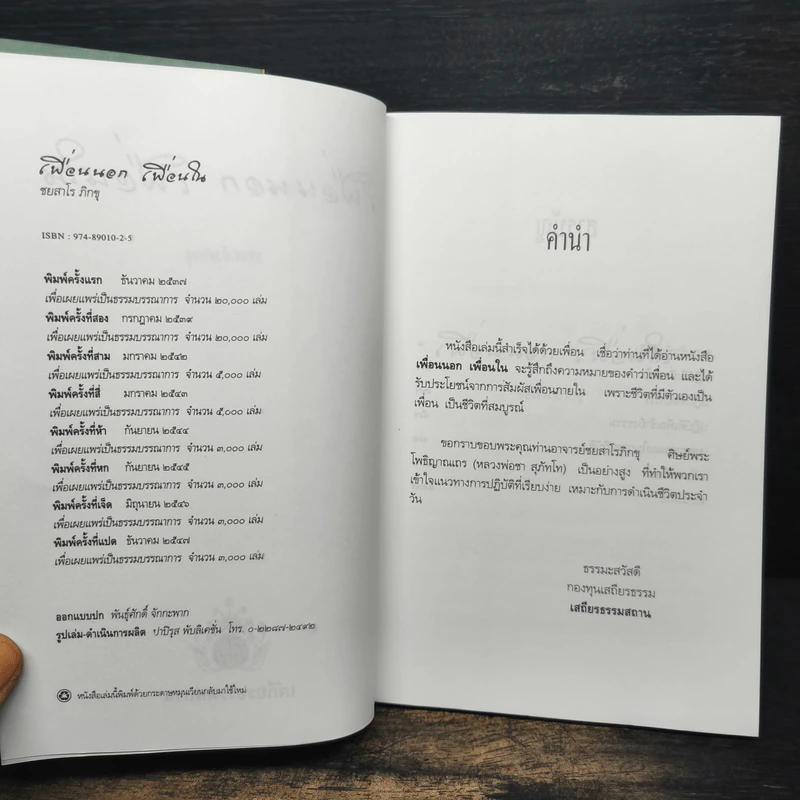 เพื่อนนอก เพื่อนใน
ชยสาโร ภิกขุ
ISBN : 974-89010-2-5
พิมพ์ครั้งแรก ธันวาคม ๒๕๓๗
เพื่อเผยแพร่เป็นธรรมบรรณาการ จำนวน ๒๐,๐๐๐ เล่ม
พิมพ์ครั้งที่สอง กรกฎาคม ๒๕๓๙
เพื่อเผยแพร่เป็นธรรมบรรณาการ จำนวน ๒๐,๐๐๐ เล่ม
พิมพ์ครั้งที่สาม มกราคม ๒๕๔๒
เพื่อเผยแพร่เป็นธรรมบรรณาการ จำนวน ๕,๐๐๐ เล่ม
พิมพ์ครั้งที่สี่ มกราคม ๒๕๔๓
เพื่อเผยแพร่เป็นธรรมบรรณาการ จำนวน ๕,๐๐๐ เล่ม
พิมพ์ครั้งที่ห้า กันยายน ๒๕๔๔
เพื่อเผยแพร่เป็นธรรมบรรณาการ จำนวน ๓,๐๐๐ เล่ม
พิมพ์ครั้งที่หก กันยายน ๒๕๔๕
เพื่อเผยแพร่เป็นธรรมบรรณาการ จำนวน ๓,๐๐๐ เล่ม
พิมพ์ครั้งที่เจ็ด มิถุนายน ๒๕๔๖
เพื่อเผยแพร่เป็นธรรมบรรณาการ จำนวน ๓,๐๐๐ เล่ม
พิมพ์ครั้งที่แปด ธันวาคม ๒๕๔๗
เพื่อเผยแพร่เป็นธรรมบรรณาการ จำนวน ๓,๐๐๐ เล่ม
ออกแบบปก พันธุ์ศักดิ์ จักกะพาก
รูปเล่ม-ดำเนินการผลิต ปาปิรุส พับลิเคชั่น โทร. ๐-๒๒๘๗-๒๔๙๒
หนังสือเล่มนี้พิมพ์ด้วยกระดาษหมุนเวียนกลับมาใช้ใหม่
คำนำ
หนังสือเล่มนี้สำเร็จได้ด้วยเพื่อน เชื่อว่าท่านที่ได้อ่านหนังสือ
เพื่อนนอก เพื่อนใน จะรู้สึกถึงความหมายของคำว่าเพื่อน และได้
รับประโยชน์จากการสัมผัสเพื่อนภายใน เพราะชีวิตที่มีตัวเองเป็น
เพื่อน เป็นชีวิตที่สมบูรณ์
ขอกราบขอบพระคุณท่านอาจารย์ชยสาโรภิกขุ ศิษย์พระ
โพธิญาณเถร (หลวงพ่อชา สุภัทโท) เป็นอย่างสูง ที่ทำให้พวกเรา
เข้าใจแนวทางการปฏิบัติที่เรียบง่าย เหมาะกับการดำเนินชีวิตประจำ
วัน
ธรรมะสวัสดี
กองทุนเสถียรธรรม
เสถียรธรรมสถาน